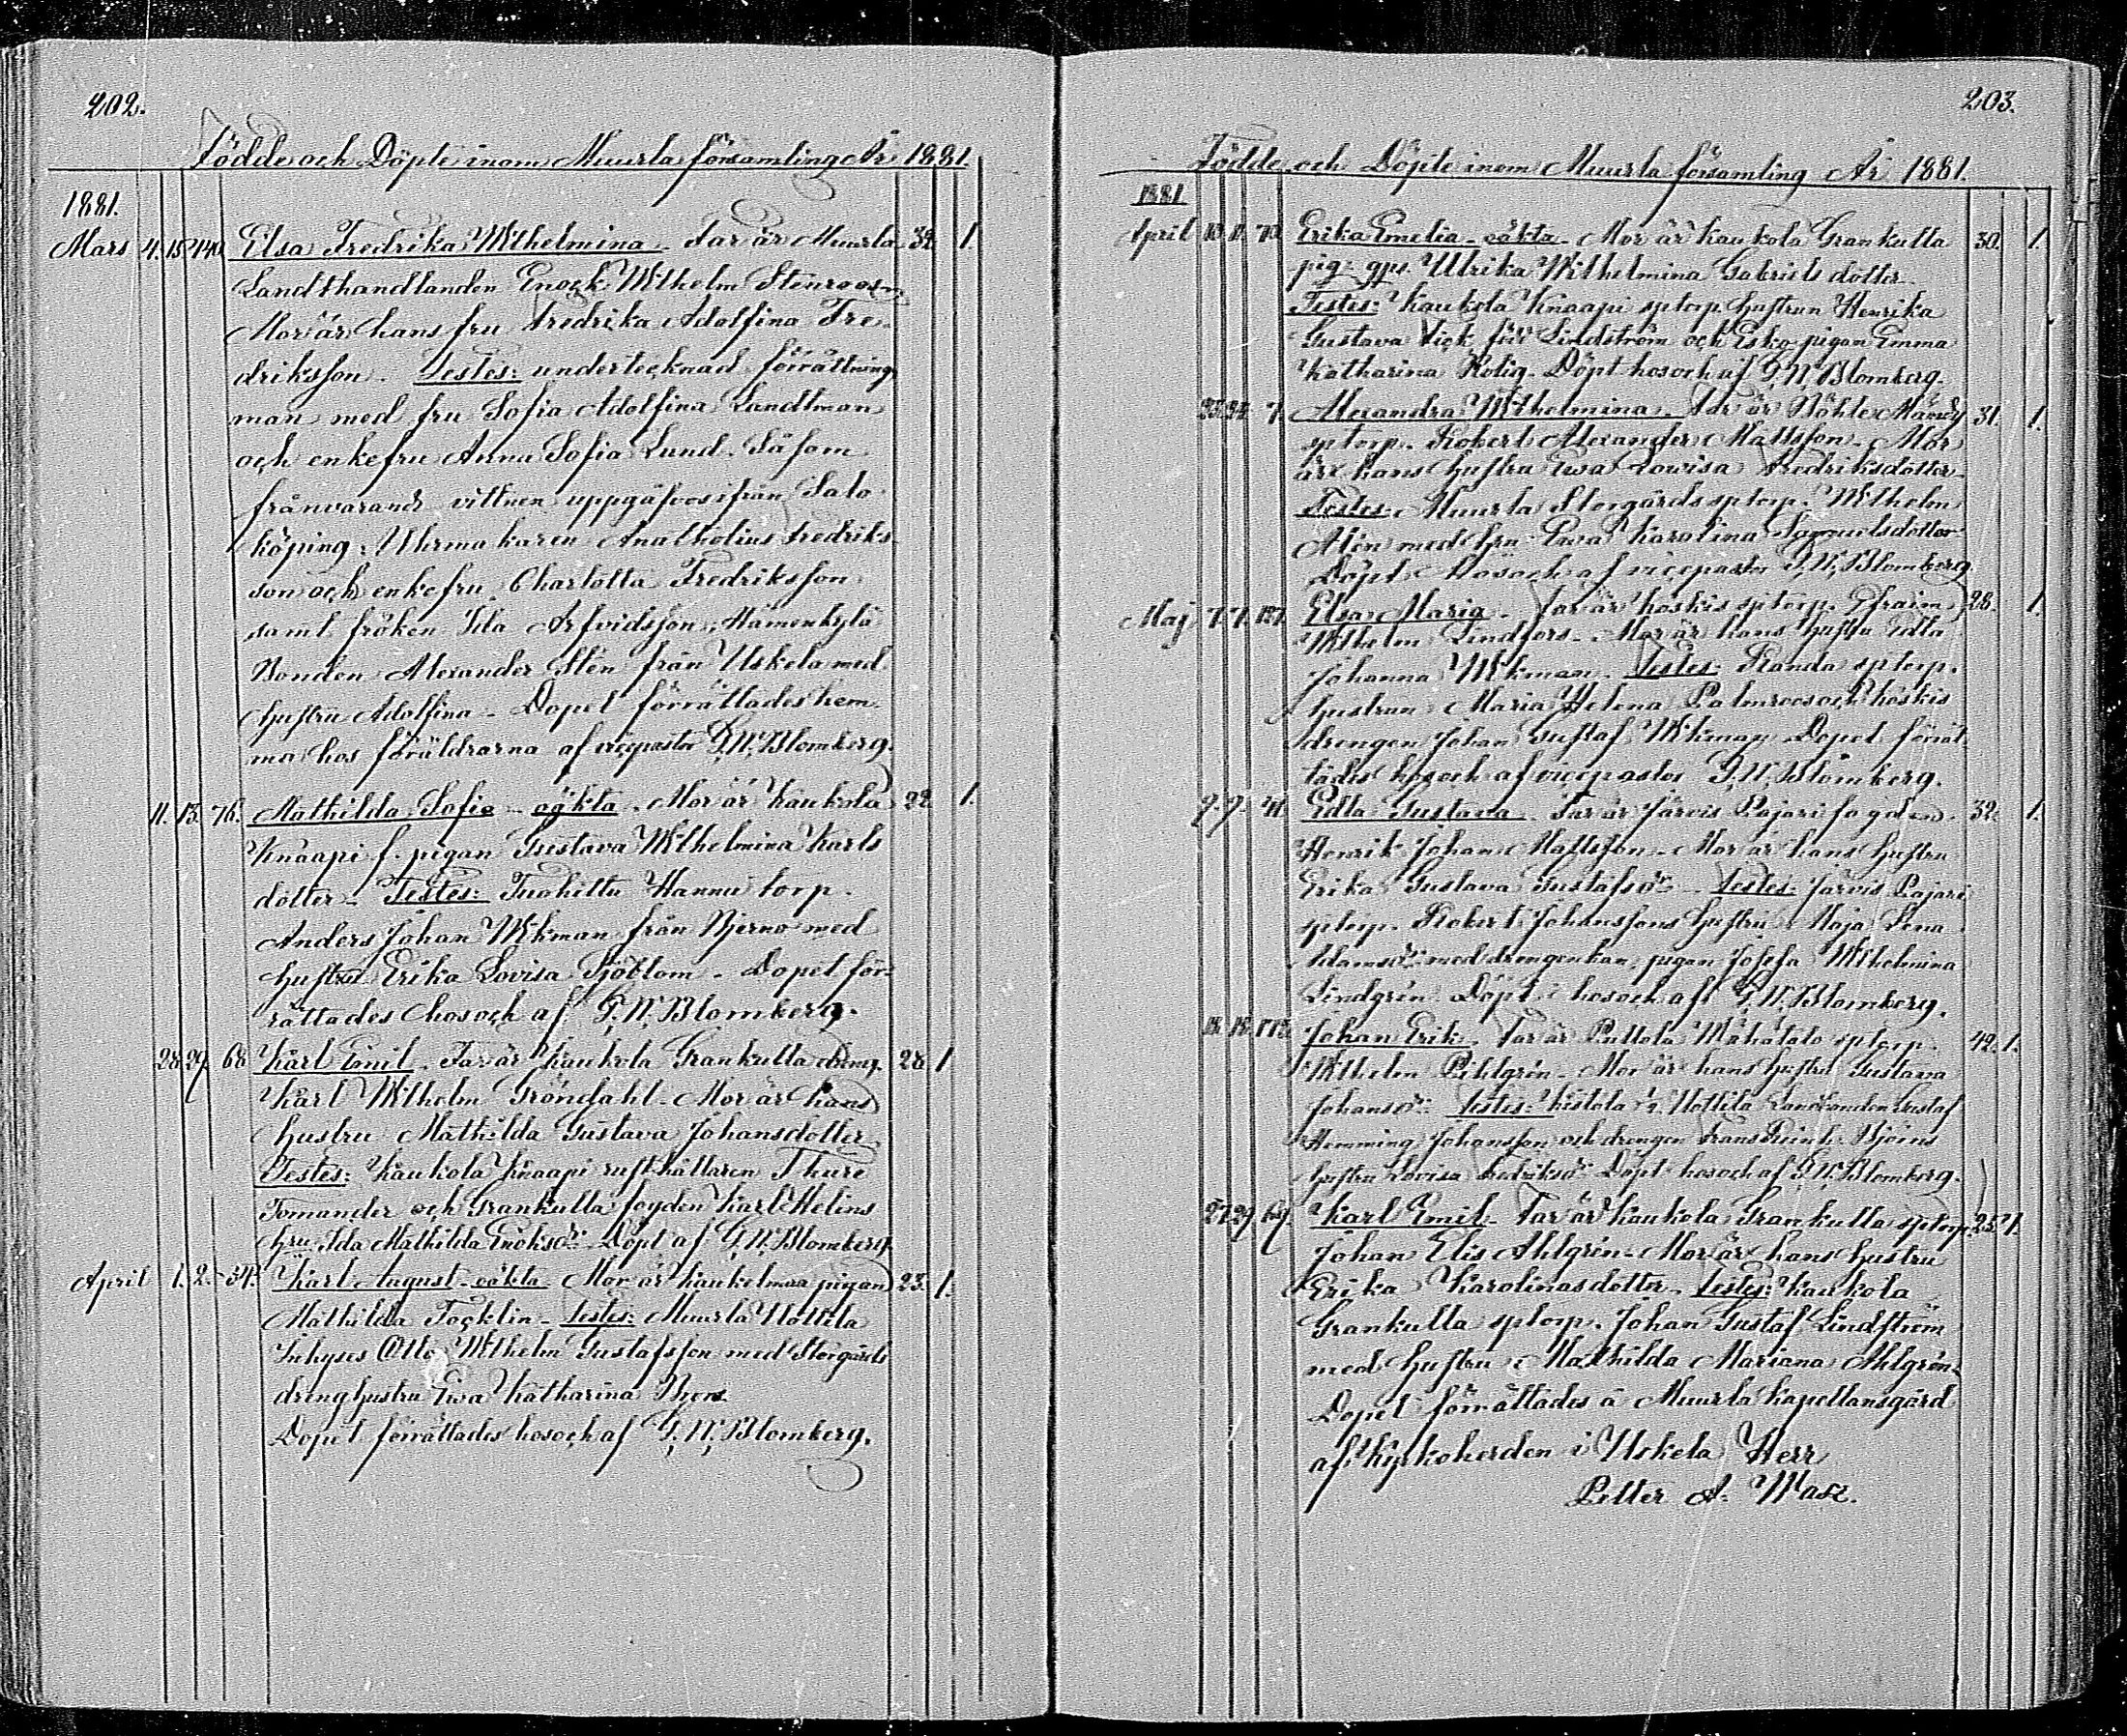 202.
Födde och Döpte inom Muurla församling År 1881.
1881.
Mars 4. 15. 140. Elsa Fredrika Wilhelmina. Far är Muurla 32. 1.
Landthandlanden Enock Wilhelm Stenroos.
Mor är hans fru Fredrika Adolfina Fre-
driksson. Testes: undertecknad förrättnings
man med fru Sofia Adolfina Landtman
och enkefru Anna Sofia Lund. Såsom
frånvarande vittnen uppgåfvos ifrån Salo
köping: Uhrmakaren Anatholius Fredriks-
son och enkefru Charlotta Fredriksson
samt fröken Ida Arfvidsson, Hämenkylä
Bonden Alexander Stén från Uskela med
hustru Adolfina. Dopet förrättades hem-
ma hos föräldrarna af vicepastor G. W. Blomberg.
11. 13. 76. Mathilda Sofia - oäkta. Mor är Kaukola 22. 1.
Knaapi f. pigan Gustava Wilhelmina Karls
dotter. Testes: Tuohittu Hannu torp.
Anders Johan Wikman från Bjerno med
hustru Erika Lovisa Sjöblom. Dopet för-
rättades hos och af G. W. Blomberg.
28. 29. 68. Karl Emil. Far är Kaukola Grankulla dreng. 28. 1.
Karl Wilhelm Gröndahl. Mor är hans
hustru Mathilda Gustava Johansdotter.
Testes: Kaukola Knaapi rusthållaren Thure
Tomander och Grankulla fogden Karl Helins
hru Ida Mathilda Enoksdr. Döpt af G. W. Blomberg.
April 1. 2. 34. Karl August - oäkta. Mor är pigan 23. 1.
Mathilda Tocklin. Testes: Muurla Uottila
Inhyses Otto Wilhelm Gustafsson med Storgårds
drenghustru Ewa Katharina
Dopet förrättades hos och af G. W. Blomberg.
203.
Födde och Döpte inom Muurla församling År 1881.
1881
April Erika Emelia - oäkta. Mor är Kaukola Grankulla 30. 1.
pig: Ulrika Wilhelmina Gabrielsdotter.
Testes: Kaukola Knaapi sptorp. hustrun Henrika
Gustava Lindström och Esko pigan Emma
Katharina Rolig. Döpt hos och af G. W. Blomberg.
7. Alexandra Wilhelmina. Far är 31. 1.
sptorp. Robert Alexander Mattsson. Mor
är hans hustru Ewa Lowisa Fredriksdotter.
Testes: Muurla Storgårds sptorp. Wilhelm
Alén med hru Ewa Karolina Samuelsdotter
Döpt hos och af vicepastor G. W. Blomberg.
Maj 7. 7. Elsa Maria. Far är Koskis sptorp. Efraim 28. 1.
Wilhelm Lindfors. Mor är hans hustru Edla
Johanna Wikman. Testes: Randa sptorp.
hustrun Maria Helena Palmroos och Koskis
drengen Johan Gustaf Wikman. Dopet förrät-
tades hos och af vicepastor G. W. Blomberg.
9. 9. 41. Edla Gustava. Far är Järvis Pajari fogden 32. 1.
Henrik Johan Mattsson. Mor är hans hustru
Erika Gustava Gustafsdr. Testes: Järvis Pajari
sptorp. Robert Johanssons hustru Maja Lena
Adamsdr. med pigan Josefa Wilhelmina
Lindgrén. Döpt hos och af G. W. Blomberg.
15. 15. Johan Erik. Far är Puttola Mähätalo sptorp. 42. 1.
Wilhelm Pihlgrén. Mor är hans hustru Gustava
Johansdr. Testes: Kistola Uottila Landbonden Gustaf
Hemming Johansson och drengen Frans Reinh. Björns
hustru Lovisa Fredriksdr. Döpt hos och af G. W. Blomberg.
27. 29. 69. Karl Emil. Far är Kaukola Grankulla sptorp. 25. 1.
Johan Elis Ahlgrén. Mor är hans hustru
Erika Karolinasdotter. Testes: Kaukola
Grankulla sptorp. Johan Gustaf Lindström
med hustru Mathilda Mariana Ahlgrén.
Dopet förrättades å Muurla Kapellansgård
af Kyrkoherden i Uskela Herr
Petter A.